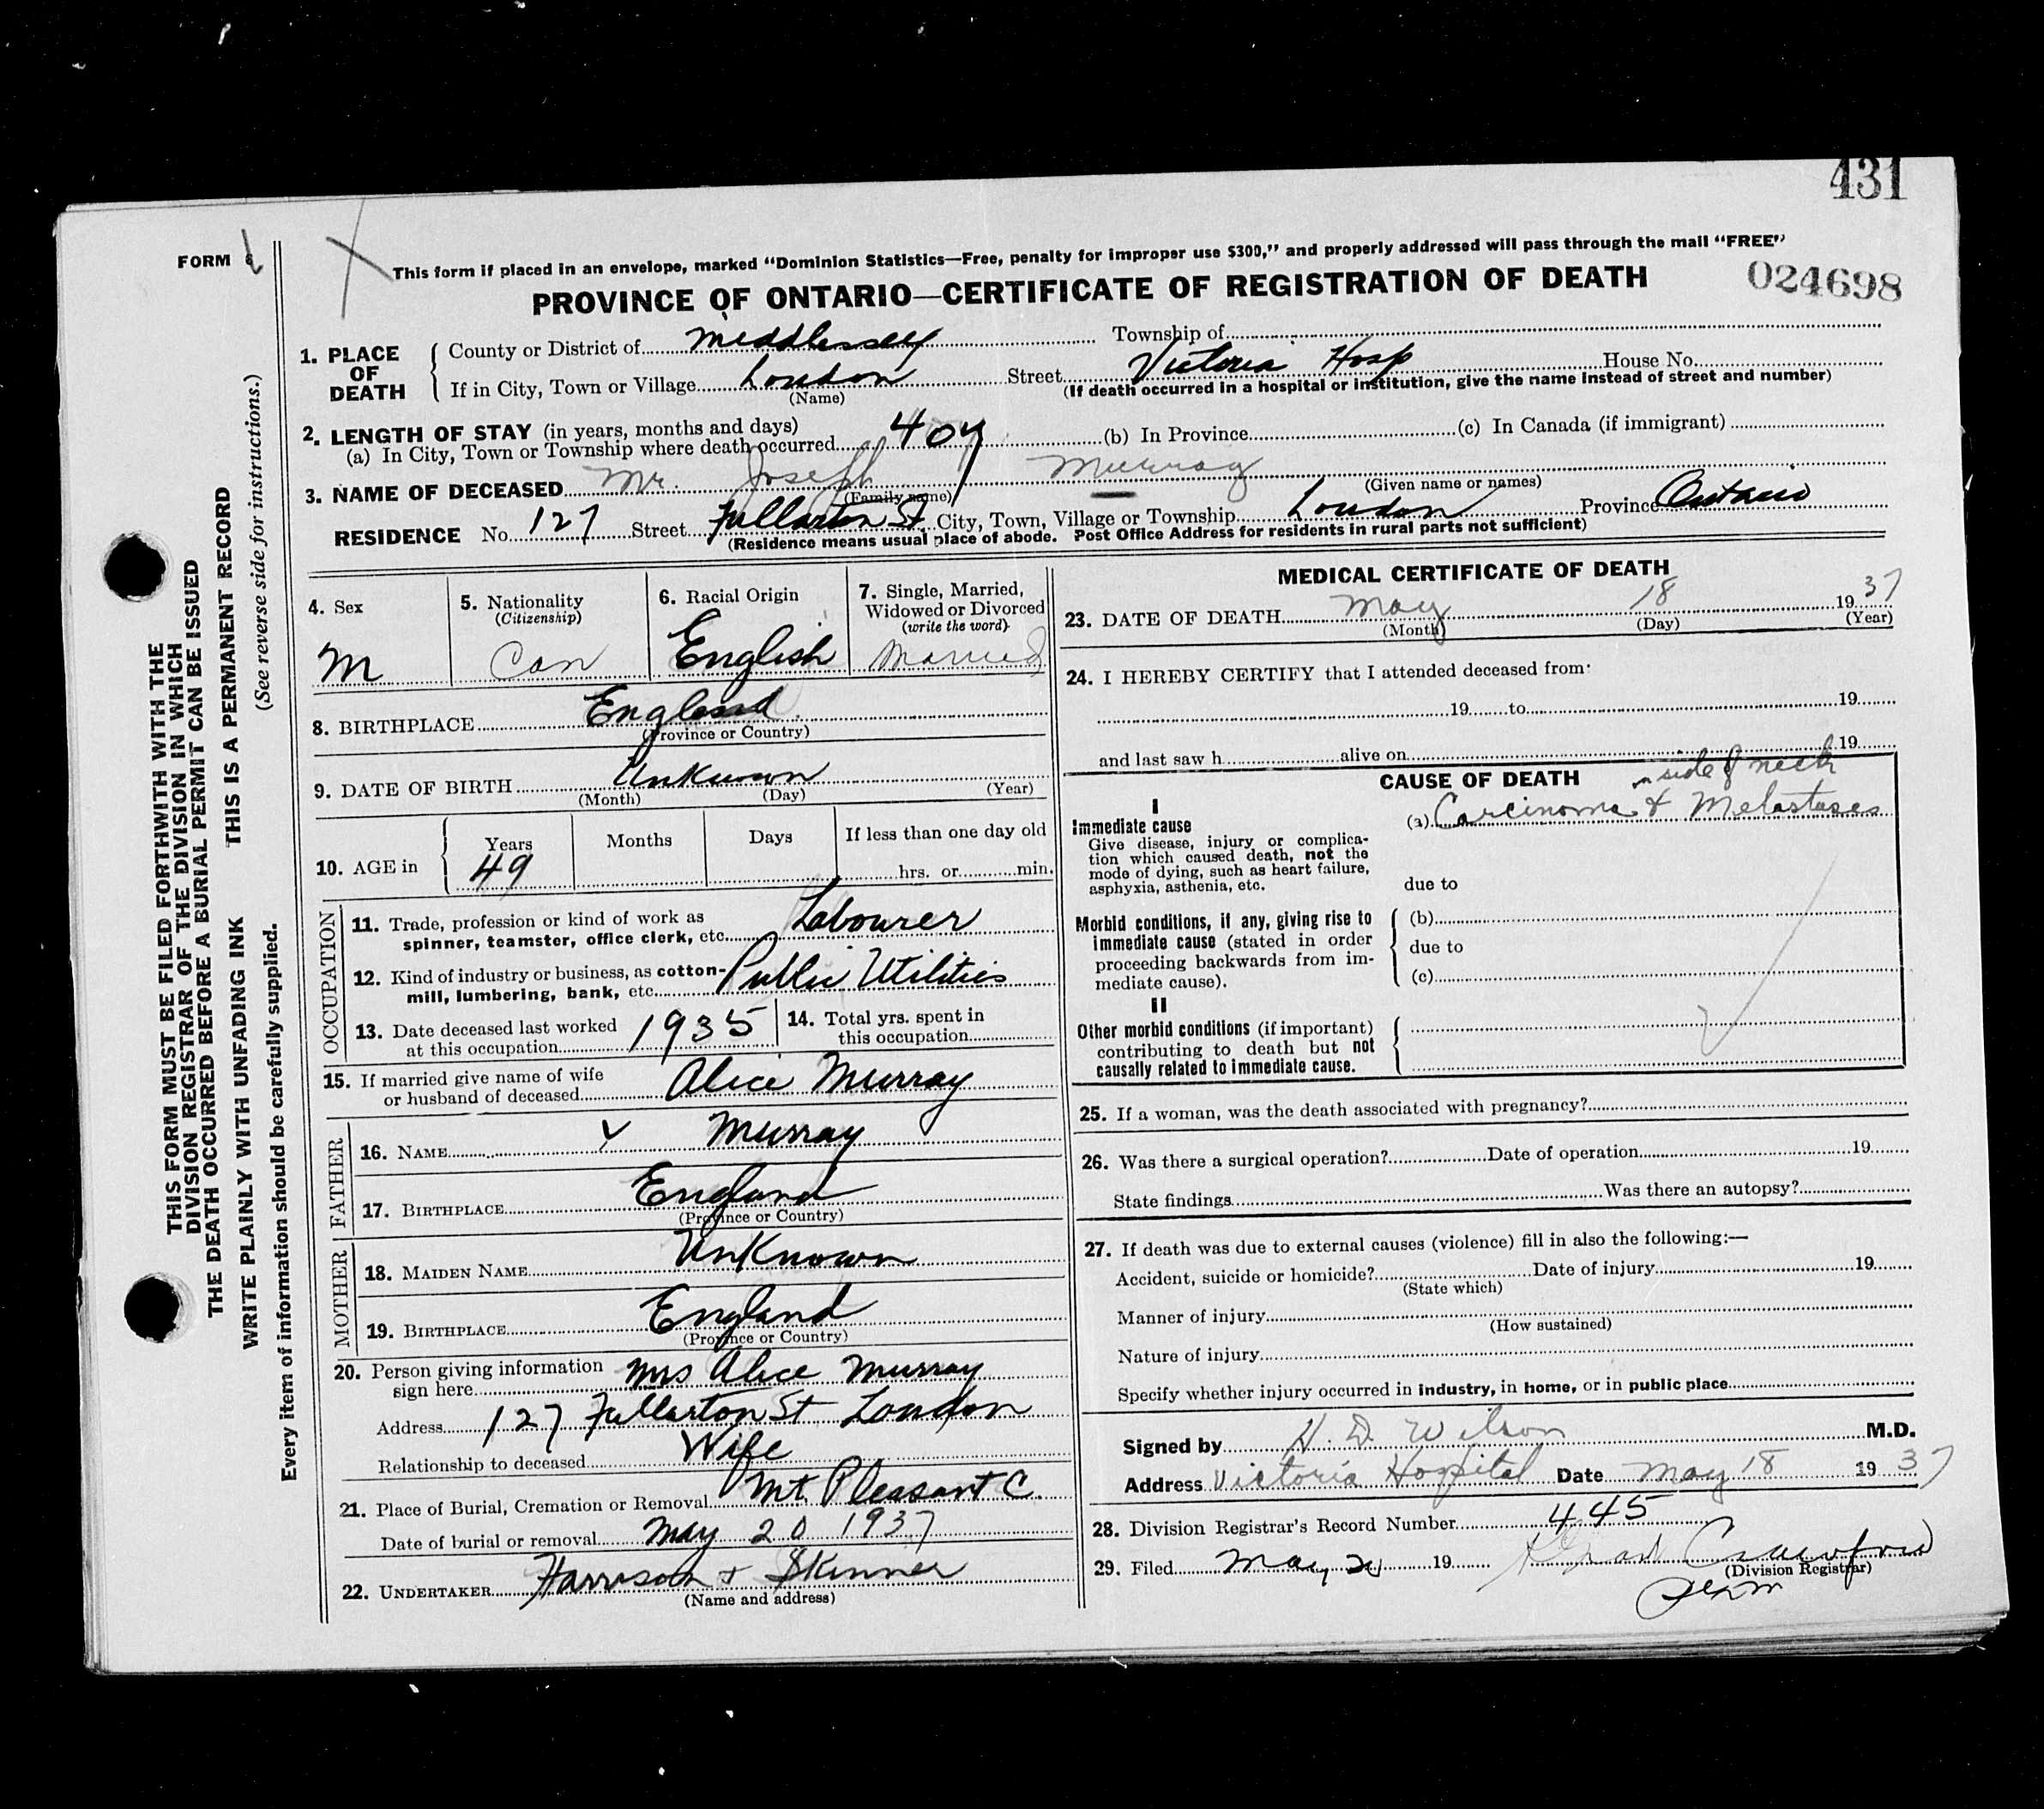 431
FORM
This form if placed in an envelope, marked "Dominion Statistics—Free, penalty for improper use $300," and properly addressed will pass through the mail "FREE"
PROVINCE OF ONTARIO—CERTIFICATE OF REGISTRATION OF DEATH 024698
1. PLACE OF DEATH
County or District of Middlesex Township of
If in City, Town or Village London Street Victoria Hosp House No.
(Name) (If death occurred in a hospital or institution, give the name instead of street and number)
2. LENGTH OF STAY (in years, months and days)
(a) In City, Town or Township where death occurred 40y (b) In Province (c) In Canada (if immigrant)
3. NAME OF DECEASED Mr. Joseph Murray
(Family name) (Given name or names)
RESIDENCE No. 127 Street Fullarton St City, Town, Village or Township London Province Ontario
(Residence means usual place of abode. Post Office Address for residents in rural parts not sufficient)
4. Sex
M
5. Nationality
(Citizenship)
Can
6. Racial Origin
English
7. Single, Married,
Widowed or Divorced
(write the word)
Married
8. BIRTHPLACE England
(Province or Country)
9. DATE OF BIRTH Unknown
(Month) (Day) (Year)
10. AGE in
Years Months Days If less than one day old
49 hrs. or min.
OCCUPATION
11. Trade, profession or kind of work as
spinner, teamster, office clerk, etc. Labourer
12. Kind of industry or business, as cotton-
mill, lumbering, bank, etc. Public Utilities
13. Date deceased last worked
at this occupation 1935
14. Total yrs. spent in
this occupation
15. If married give name of wife
or husband of deceased Alice Murray
FATHER
16. NAME Murray
17. BIRTHPLACE England
(Province or Country)
MOTHER
18. MAIDEN NAME UnKnown
19. BIRTHPLACE England
(Province or Country)
20. Person giving information
sign here Mrs Alice Murray
Address 127 Fullarton St London
Relationship to deceased Wife
21. Place of Burial, Cremation or Removal Mt. Pleasant C.
Date of burial or removal May 20 1937
22. UNDERTAKER Harrison + Skinner
(Name and address)
MEDICAL CERTIFICATE OF DEATH
23. DATE OF DEATH May 18 1937
(Month) (Day) (Year)
24. I HEREBY CERTIFY that I attended deceased from:
19 to 19
and last saw h alive on 19
CAUSE OF DEATH
side of neck
I
Immediate cause
Give disease, injury or complica-
tion which caused death, not the
mode of dying, such as heart failure,
asphyxia, asthenia, etc.
(a) Carcinoma & Metastases
due to
Morbid conditions, if any, giving rise to
immediate cause (stated in order
proceeding backwards from im-
mediate cause).
(b)
due to
(c)
II
Other morbid conditions (if important)
contributing to death but not
causally related to immediate cause.
25. If a woman, was the death associated with pregnancy?
26. Was there a surgical operation? Date of operation 19
State findings Was there an autopsy?
27. If death was due to external causes (violence) fill in also the following:—
Accident, suicide or homicide? Date of injury 19
(State which)
Manner of injury
(How sustained)
Nature of injury
Specify whether injury occurred in industry, in home, or in public place
Signed by H. D. Wilson M.D.
Address Victoria Hospital Date May 18 1937
28. Division Registrar's Record Number 445
29. Filed May 19 Crawford
(Division Registrar)
THIS FORM MUST BE FILED FORTHWITH WITH THE
DIVISION REGISTRAR OF THE DIVISION IN WHICH
THE DEATH OCCURRED BEFORE A BURIAL PERMIT CAN BE ISSUED
WRITE PLAINLY WITH UNFADING INK THIS IS A PERMANENT RECORD
(See reverse side for instructions.)
Every item of information should be carefully supplied.